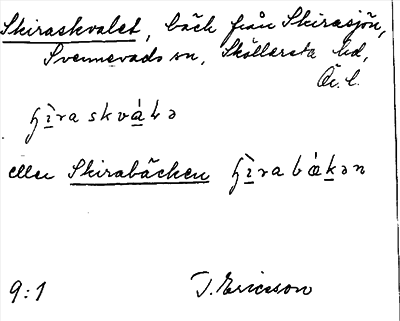 Skiraskvalet, bäck från Skirasjön,
Svennevads sn, Sköllersta hd,
Ör. l.
ʃì̱raskvá̱lə
eller Skirabäcken ʃì̱rabǽḵən
9:1 T. Ericsson